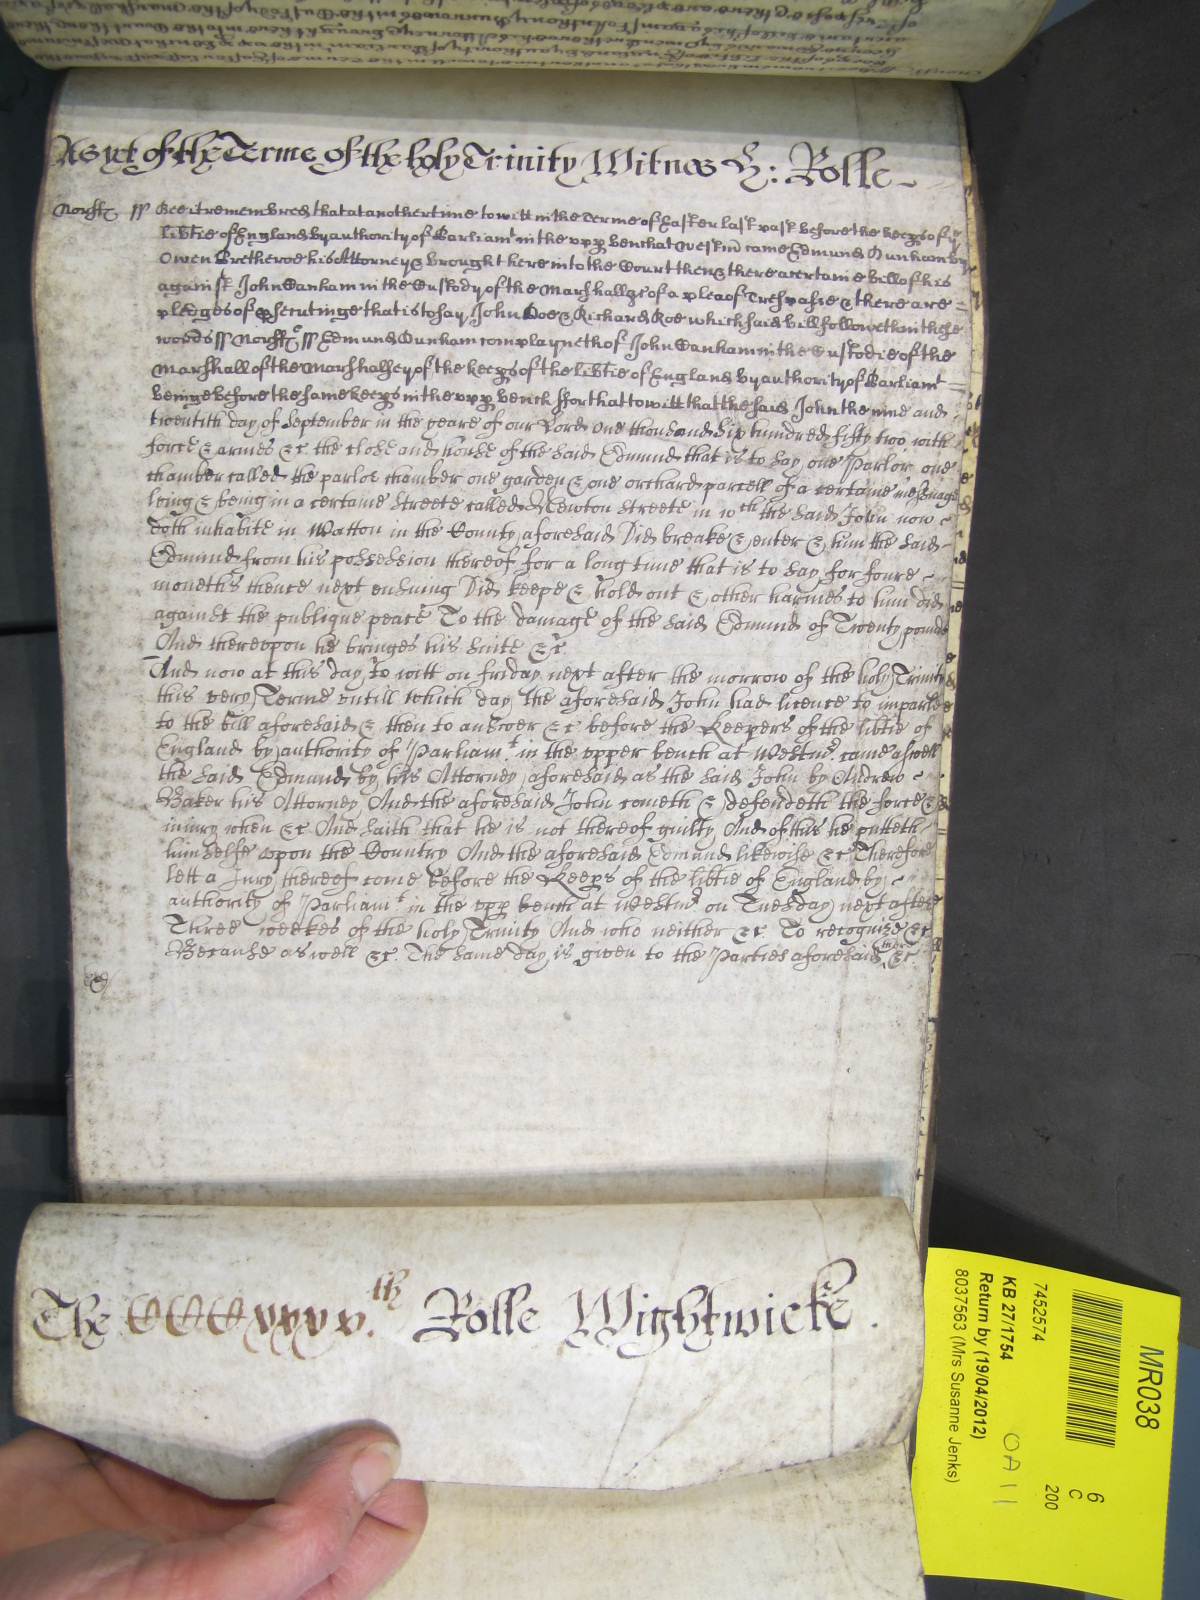 As yet of the Terme of the holy Trinity Witnes H: Rolle
Norff ss Bee it remembred that at another time to witt in the Terme of Easter last past before the keeps of ye
lib̄tie of England by authority of Parliamt in the upp bench at Westmr came Edmund Dunham by
Owen Bretheroe his Attorney & brought here into the Court then & there a certaine bill of his
against John Sanham in the Custody of the Marshall &c of a plea of Trespasse & there are
pledges of psecutinge that is to say John Doe & Richard Roe which said bill followeth in these
words ss Norff ss Edmund Dunham complayneth of John Sanham in the Custodie of the
Marshall of the Marshalsey of the keeps of the lib̄tie of England by authority of Parliamt
beinge before the same keeps in the upp bench ffor that to witt that the said John the nine and
twentith day of September in the yeare of our Lord one thousand six hundred fifty two with
force & armes &c the close and house of the said Edmund that is to say one Parlor one
chamber called the parlor chamber one garden & one orchard parcell of a certaine messuage
lying & being in a certaine streete called Newton streete in wch the said John now
doth inhabite in Watton in the County aforesaid Did breake & enter & him the said
Edmund from his possession thereof for a long time that is to say for foure
moneths thence next ensuing Did keepe & hold out & other harmes to him did
against the publique peace To the damage of the said Edmund of Twenty pounds
And thereupon he bringes his suite &c
And now at this day to witt on friday next after the morrow of the holy Trinity
this very Terme untill which day the aforesaid John had licence to imparle
to the bill aforesaid & then to answer &c before the Keepers of the lib̄tie of
England by authority of Parliamt in the upper bench at Westmr came aswell
the said Edmund by his Attorney aforesaid as the said John by Andrew
Baker his Attorney And the aforesaid John cometh & defendeth the force &
iniury when &c And saith that he is not thereof guilty And of this he putteth
himselfe upon the Country And the aforesaid Edmund likewise &c Therefore
lett a Jury thereof come before the Keeps of the lib̄tie of England by
authority of Parliamt in the upp bench at Westmr on Tuesday next after
Three weekes of the holy Trinity And who neither &c To recognize &c
Because as well &c The same day is given to the Parties aforesaid there &c
The CCCxxxv.th Rolle Wightwicke.
MR038
7452574
KB 27/1754
Return by (19/04/2012)
8037563 (Mrs Susanne Jenks)
6
C
200
OA11